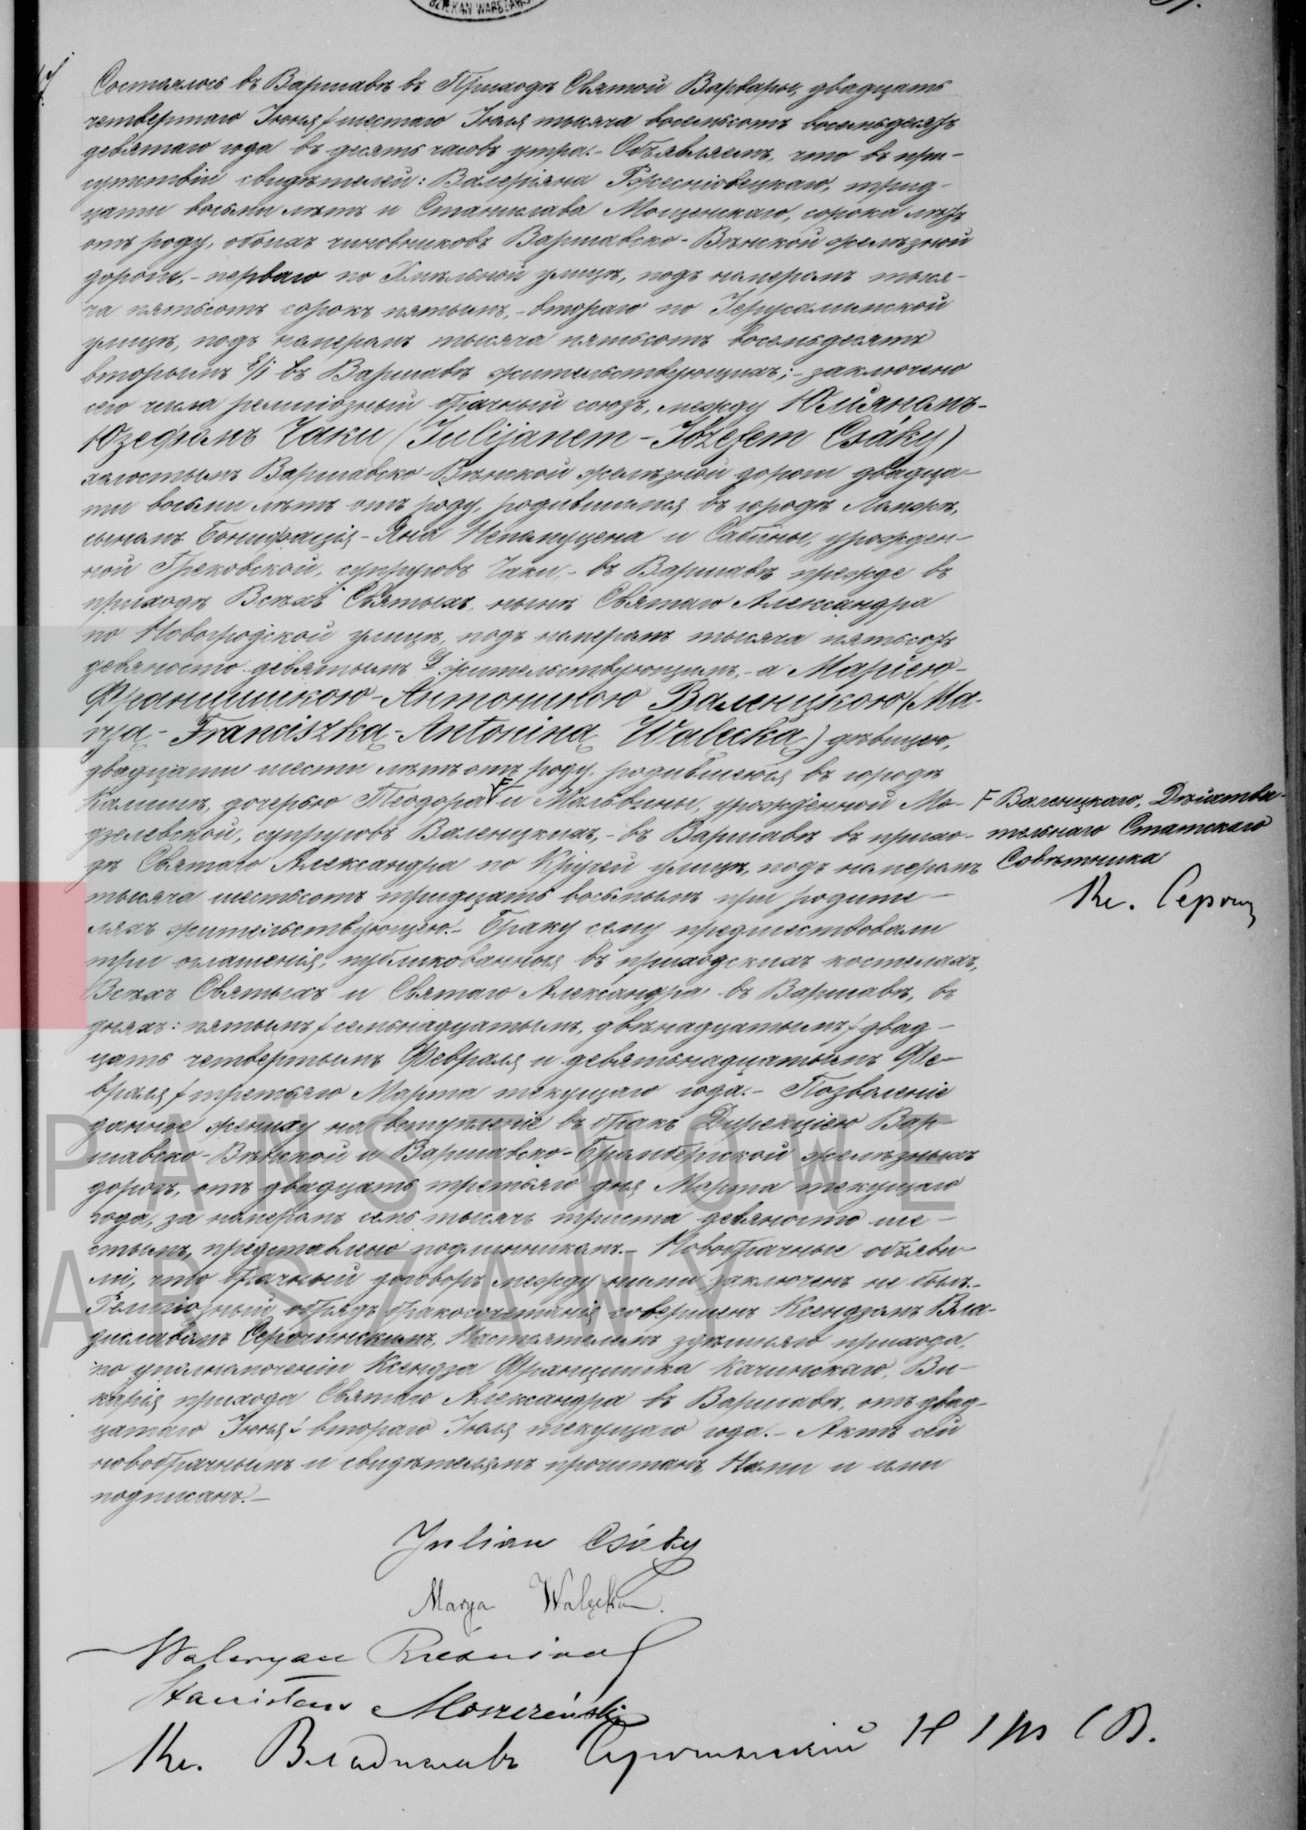 DZIEKAN WARSZAWS
Состоялось въ Варшавѣ въ Приходѣ Святой Варвары, двадцать
четвертаго Іюня / шестаго Іюля тысяча восемьсотъ восемьдесятъ
девятаго года въ десять часовъ утра.- Объявляемъ, что въ при-
сутствіи свидѣтелей: Валеріяна Бресніовецкаго, трид-
цати восьми лѣтъ и Станислава Мощенскаго, сорока лѣтъ
отъ роду, обоихъ чиновниковъ Варшавско-Вѣнской желѣзной
дороги,- перваго по Хмѣльной улицѣ, подъ номеромъ тыся-
ча пятьсотъ сорокъ пятымъ,- втораго по Іерусалимской
улицѣ, подъ номеромъ тысяча пятьсотъ восемьдесятъ
вторымъ въ Варшавѣ жительствующихъ;- заключено
сего числа религіозный брачный союзъ, между Юліяномъ-
Юзефомъ Чаки (Julijanem-Józefem Csáky)
холостымъ Варшавско Вѣнской желѣзной дороги двадца-
ти восьми лѣтъ отъ роду, родившимся въ городѣ
сыномъ Бонифація-Яна Непомуцена и Сабины, урожден-
ной Грековской, супруговъ Чаки,- въ Варшавѣ прежде въ
приходѣ Всѣхъ Святыхъ, нынѣ Святаго Александра
по Новогродской улицѣ, подъ номеромъ тысяча пятьсотъ
девяносто девятымъ жительствующимъ,- а Маріею-
Францишкою-Антониною Валенцкою (Ма-
ryą-Franciszką-Antoniną Wałęcką) дѣвицею,
двадцати шести лѣтъ отъ роду, родившеюся въ городѣ
Калишѣ, дочерью Теодора F и Мальвины, урожденной Мо-
дзелевской, супруговъ Валенцкихъ,- въ Варшавѣ въ прихо-
дѣ Святаго Александра по Кручей улицѣ, подъ номеромъ
тысяча шестьсотъ тридцать восьмымъ при родите-
ляхъ жительствующею.- Браку сему предшествовали
три оглашенія, публикованныя въ приходскихъ костелахъ,
Всѣхъ Святыхъ и Святаго Александра въ Варшавѣ, въ
дняхъ: пятымъ / семьнадцатымъ, двѣнадцатымъ / двад-
цать четвертымъ Февраля и девятьнадцатымъ Фе-
враля / третьяго Марта текущаго года.- Позволеніе
данное жениху на вступленіе въ бракъ Дирекціею Вар-
шавско-Вѣнской и Варшавско-Бромбергской желѣзныхъ
дорогъ, отъ двадцать третьяго дня Марта текущаго
года, за номеромъ семь тысячъ триста девяносто ше-
стымъ, представлено подлинникомъ.- Новобрачные объяви-
ли, что брачный договоръ между ними заключенъ не былъ.-
Религіозный обрядъ бракосочетанія совершенъ Ксендзомъ Вла-
диславомъ Серочинскимъ, Настоятелемъ здѣшняго прихода,
по уполномоченіи Ксендза Францишка Качинскаго, Ви-
карія прихода Святаго Александра въ Варшавѣ, отъ двад-
цатаго Іюня / втораго Іюля текущаго года.- Актъ сей
новобрачнымъ и свидѣтелямъ прочитанъ, Нами и ими
подписанъ.-
F Валенцкаго, Дѣйстви-
тельнаго Статскаго
Совѣтника
Кс. Сероч
Julian Csáky
Marya Wałęcka
Waleryan
Stanisław Moszczeński
Кс. Владиславъ Серочинскій
PAŃSTWOWE
ARSZAWY